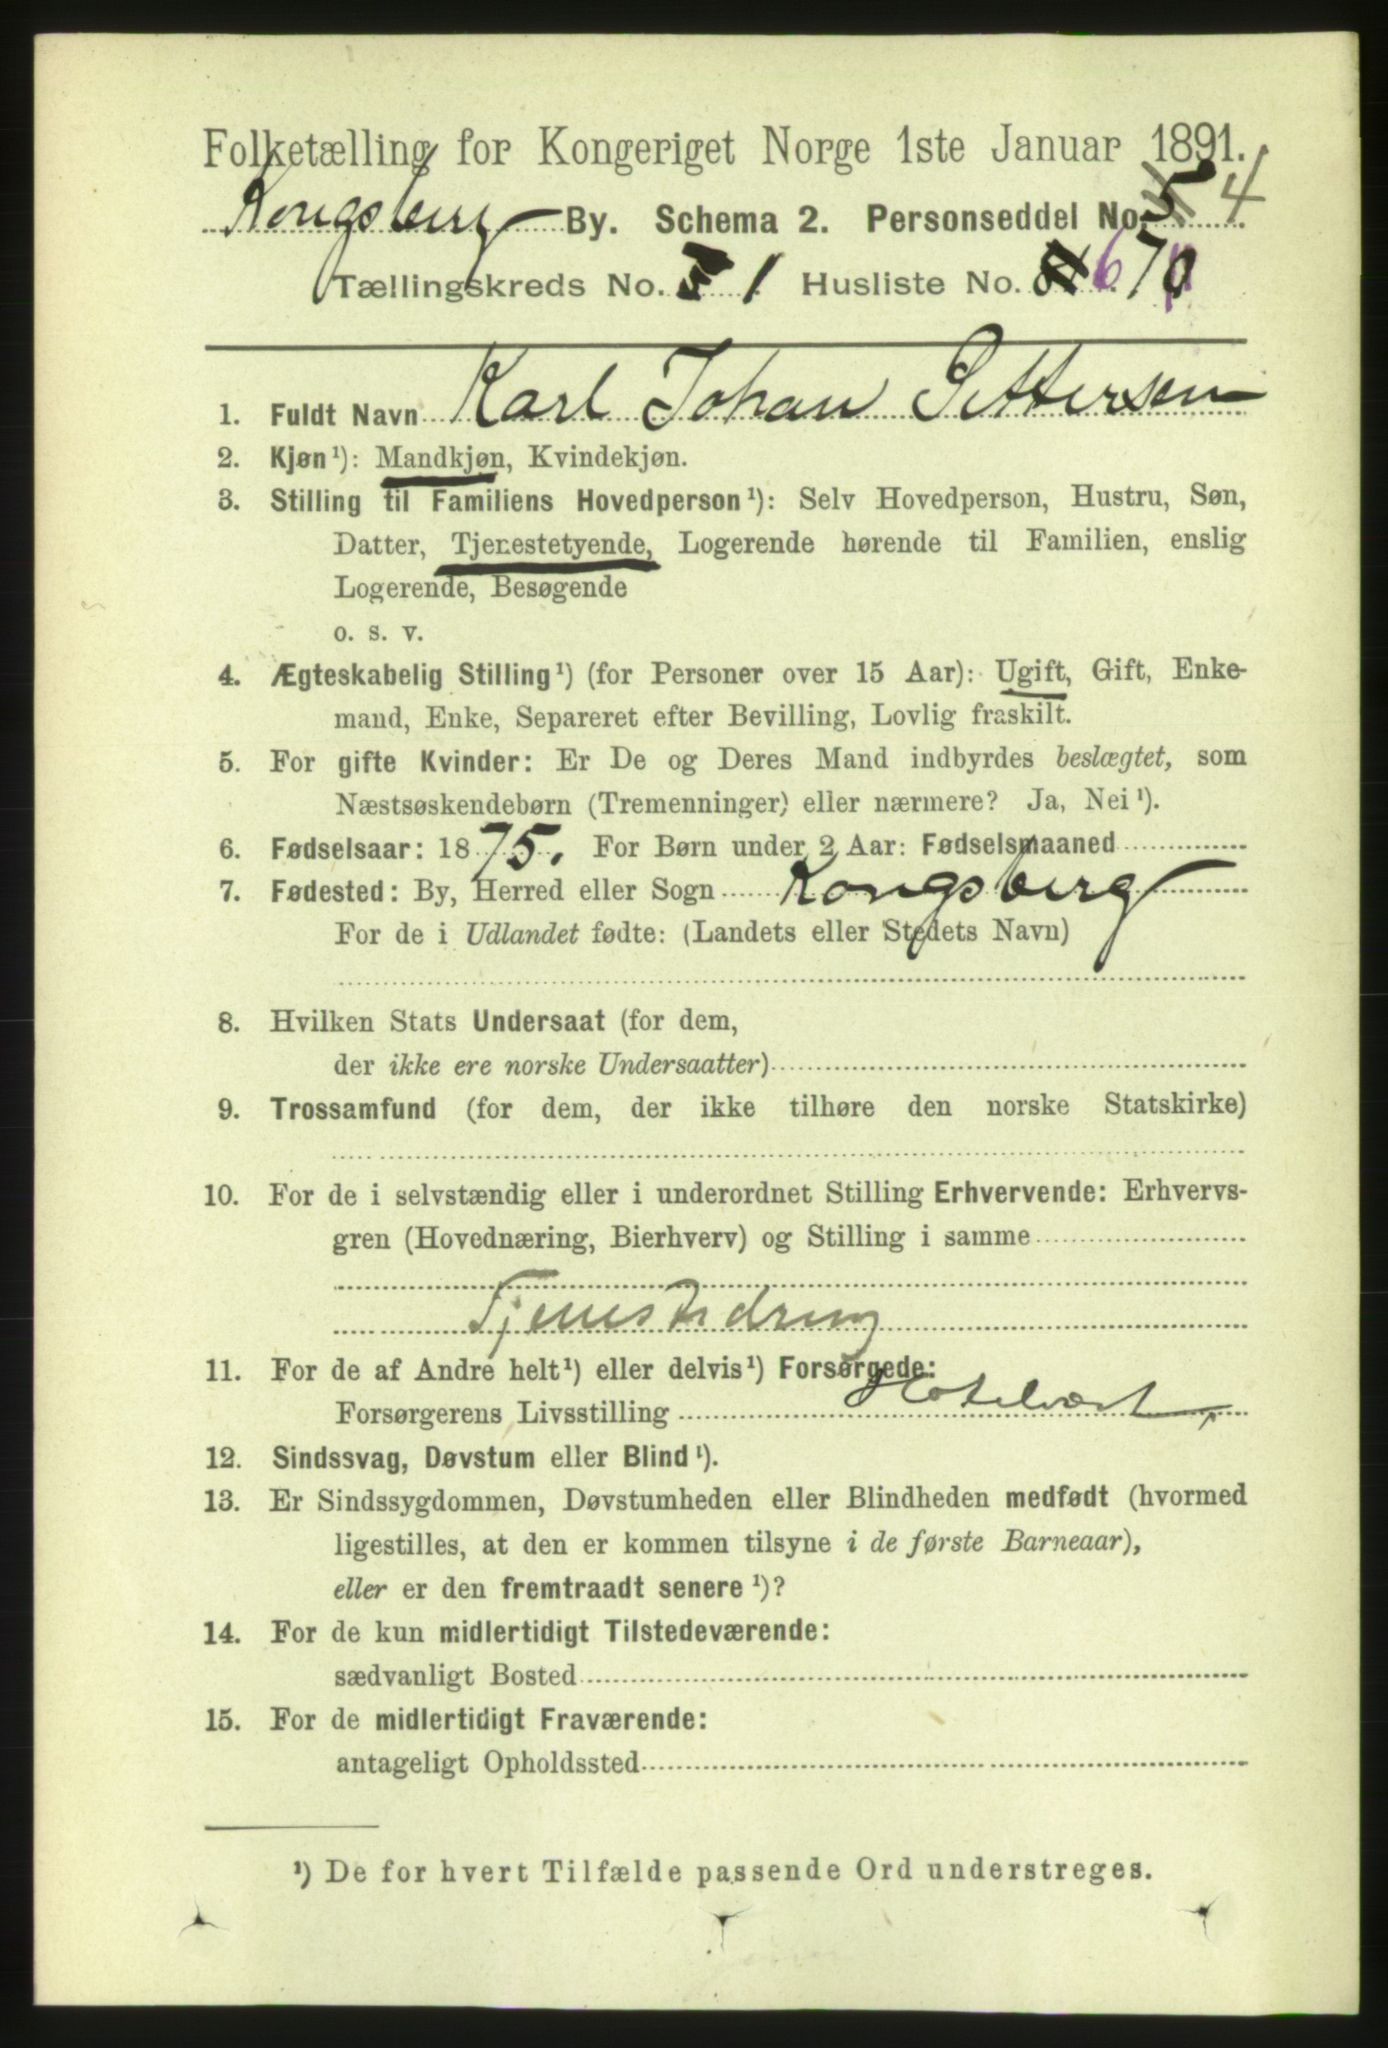 Folketælling for Kongeriget Norge 1ste Januar 1891.
Kongsberg By. Schema 2. Personseddel No. 5 4
Tællingskreds No. 1 Husliste No. 6 70
1. Fuldt Navn Karl Johan Pettersen
2. Kjøn¹): Mandkjøn, Kvindekjøn.
3. Stilling til Familiens Hovedperson¹): Selv Hovedperson, Hustru, Søn,
Datter, Tjenestetyende, Logerende hørende til Familien, enslig
Logerende, Besøgende
o. s. v.
4. Ægteskabelig Stilling¹) (for Personer over 15 Aar): Ugift, Gift, Enke-
mand, Enke, Separeret efter Bevilling, Lovlig fraskilt.
5. For gifte Kvinder: Er De og Deres Mand indbyrdes beslægtet, som
Næstsøskendebørn (Tremenninger) eller nærmere? Ja, Nei¹).
6. Fødselsaar: 1875. For Børn under 2 Aar: Fødselsmaaned
7. Fødested: By, Herred eller Sogn Kongsberg
For de i Udlandet fødte: (Landets eller Stedets Navn)
8. Hvilken Stats Undersaat (for dem,
der ikke ere norske Undersaatter)
9. Trossamfund (for dem, der ikke tilhøre den norske Statskirke)
10. For de i selvstændig eller i underordnet Stilling Erhvervende: Erhvervs-
gren (Hovednæring, Bierhverv) og Stilling i samme
Tjenestedreng
11. For de af Andre helt¹) eller delvis¹) Forsørgede:
Forsørgerens Livsstilling Hotelvært
12. Sindssvag, Døvstum eller Blind¹).
13. Er Sindssygdommen, Døvstumheden eller Blindheden medfødt (hvormed
ligestilles, at den er kommen tilsyne i de første Barneaar),
eller er den fremtraadt senere¹)?
14. For de kun midlertidigt Tilstedeværende:
sædvanligt Bosted
15. For de midlertidigt Fraværende:
antageligt Opholdssted
¹) De for hvert Tilfælde passende Ord understreges.